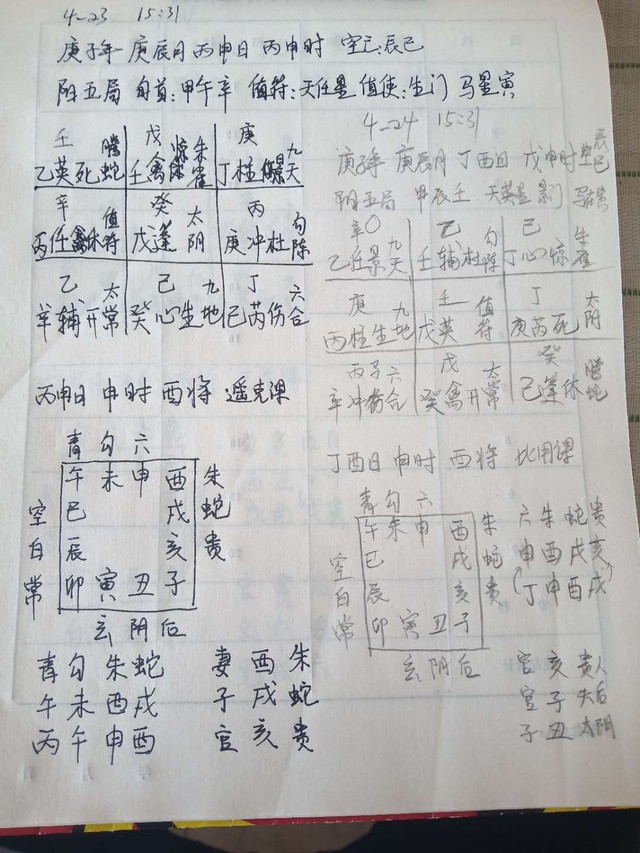 4-23 15:31
庚子年 庚辰月 丙申日 丙申时 空亡:辰巳
阳五局 旬首:甲午辛 值符:天任星 值使:生门 马星寅
壬 腾 戊 惊朱 庚 九
乙英死蛇 壬禽 雀 丁柱 天
辛 值 癸 太 丙 勾
丙任 休符 戊蓬 阴 庚冲杜陈
乙 太 己 九 丁 六
辛辅开常 癸心生地 己芮伤合
丙申日 申时 酉将 遥克课
青 勾 六
午 未 申 酉 朱
空 巳 戌 蛇
白 辰 亥 贵
常 卯 寅 丑 子
玄 阴 后
青 勾 朱 蛇 妻 酉 朱
午 未 酉 戌 子 戌 蛇
丙 午 申 酉 官 亥 贵
4-24 15:31
庚子年 庚辰月 丁酉日 戊申时 空 辰巳
阳五局 甲辰壬 天英星 景门
辛〇 九 乙 勾 己 朱
乙任景天 壬辅杜陈 丁心惊雀
庚 九 壬 值 丁 太
丙柱生地 戊英 符 庚芮死阴
丙子六 戊 太 癸 腾
辛冲伤合 癸禽开常 己蓬休蛇
丁酉日 申时 酉将 比用课
青 勾 六
午 未 申 酉 朱
空 巳 戌 蛇
白 辰 亥 贵
常 卯 寅 丑 子
玄 阴 后
六 朱 蛇 贵
申 酉 戌 亥
(丁 申 酉 戌)
官 亥 贵人
官 子 天后
子 丑 太阴